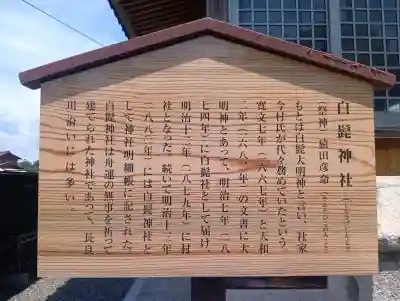 白髭神社（しらひげじんじゃ）
（祭神）猿田彦命（さるたひこのみこと）
もとは白髭大明神と言い、社家
今村氏が代々務めていたという。
寛文七年（一六六七年）と天和
二年（一六八二年）の文書に大
明神とあって、明治七年（一八
七四年）に白髭社として届け、
明治十二年（一八七九年）に村
社となった。続いて明治十三年
（一八八〇年）には白髭神社と
して神社明細帳に記された。
白髭神社は舟運の無事を祈って
建てられた神社であって、長良
川沿いには多い。